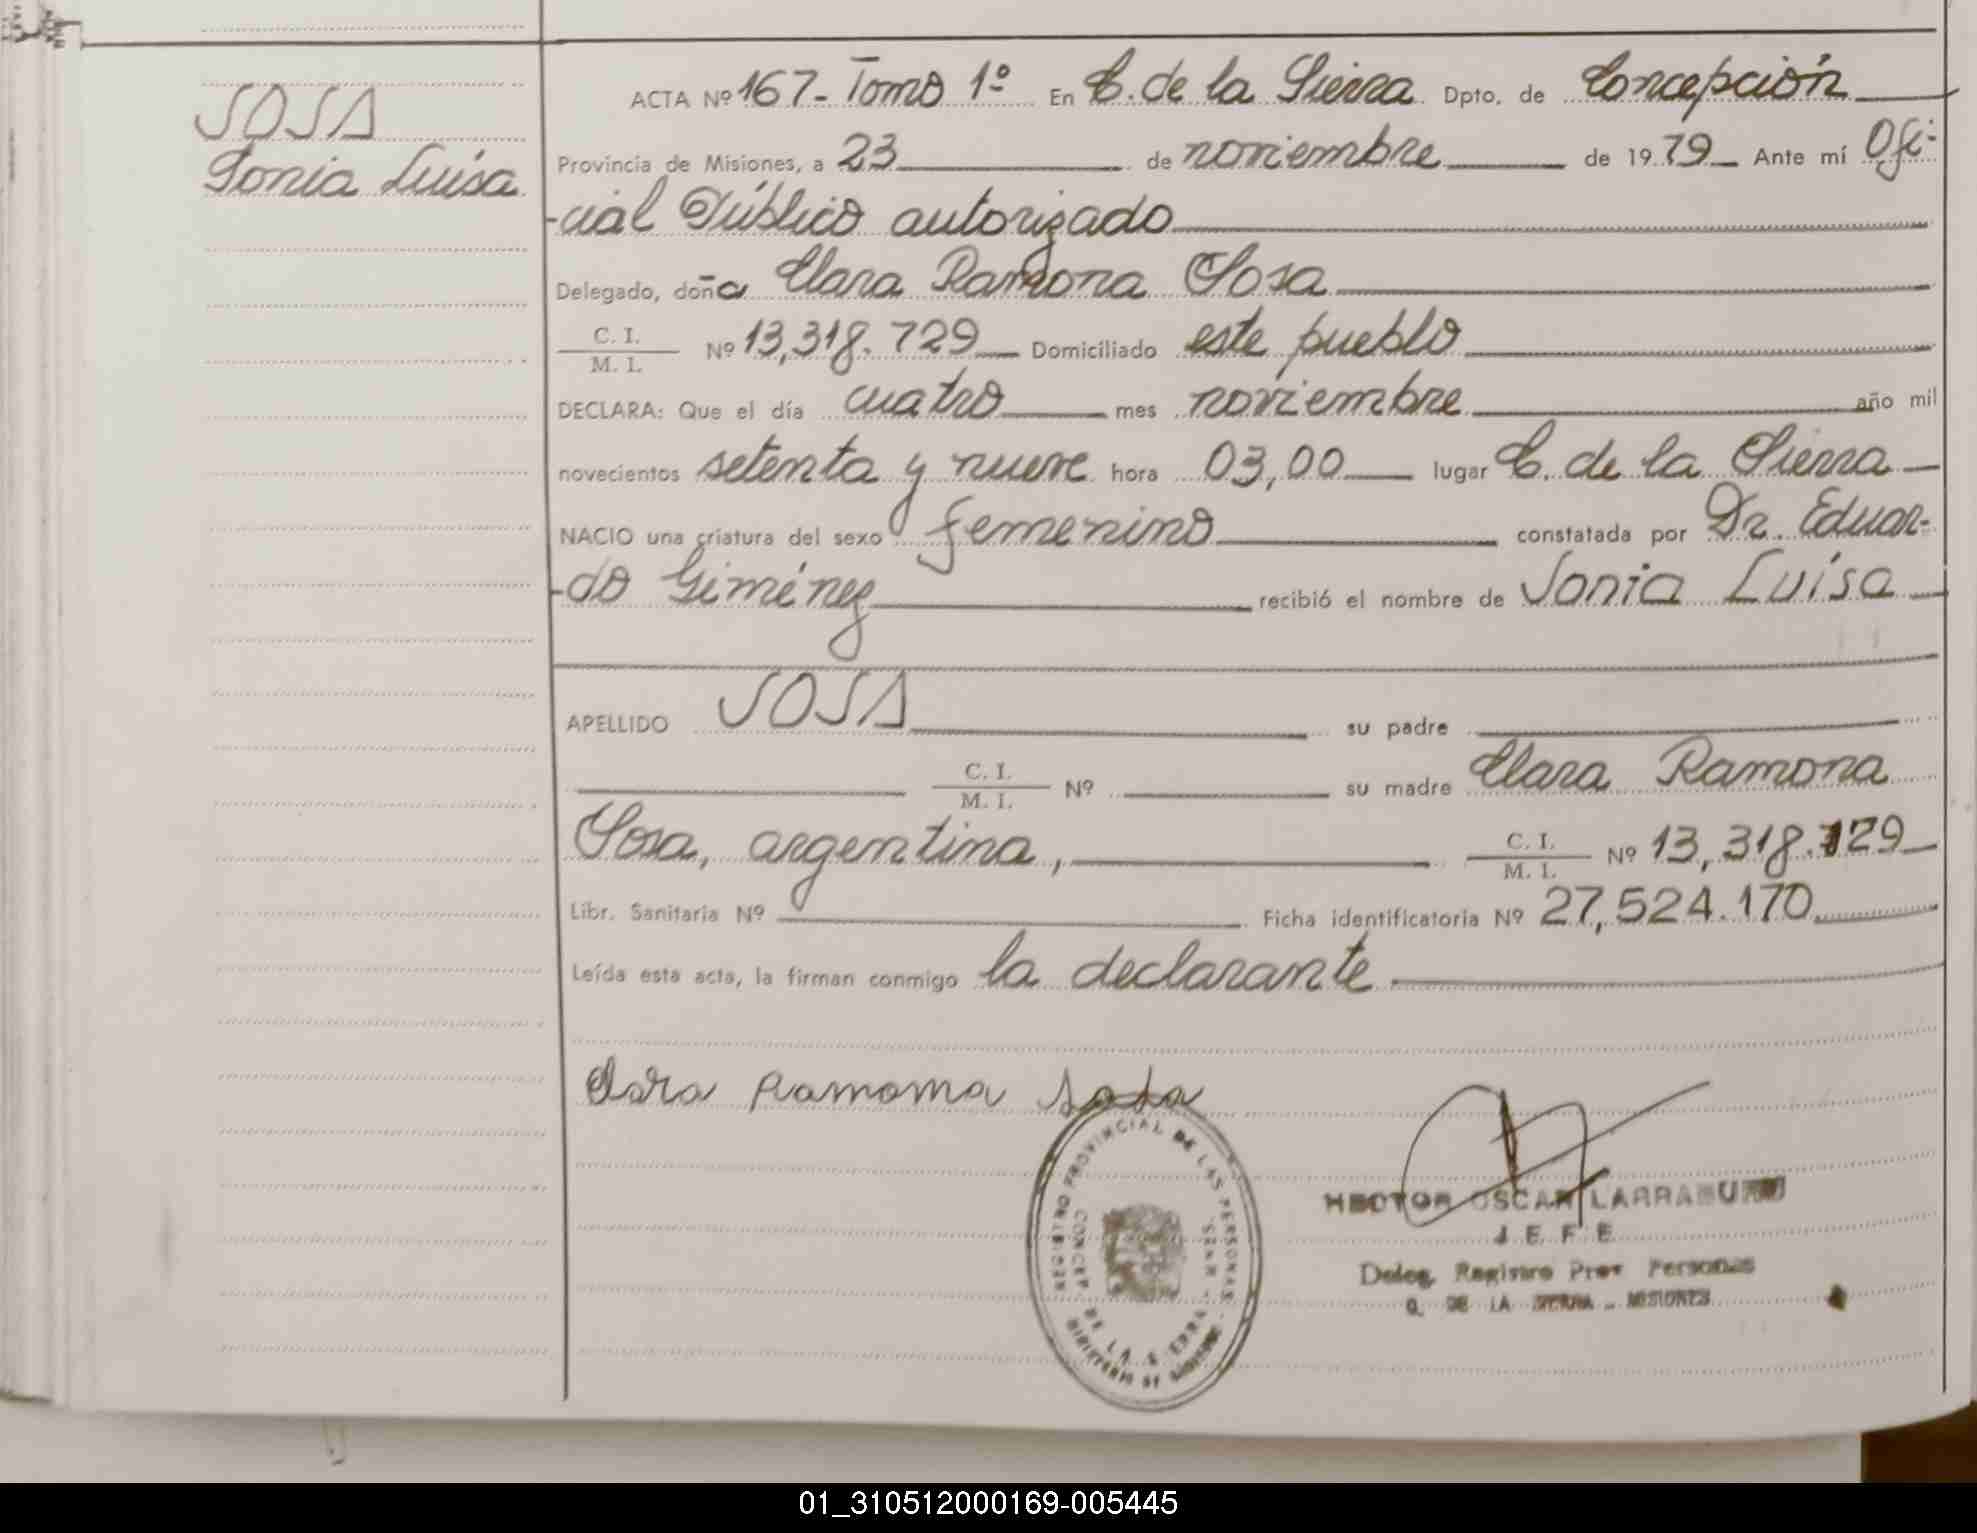 SOSA
Sonia Luisa
ACTA Nº 167- Tomo 1º En C. de la Sierra Dpto. de Concepción
Provincia de Misiones, a 23 de noviembre de 1979 Ante mí Ofi-
-cial Público autorizado
Delegado, doña Clara Ramona Sosa
C. I. / M. I. Nº 13,318.729 Domiciliado este pueblo
DECLARA: Que el día cuatro mes noviembre año mil
novecientos setenta y nueve hora 03,00 lugar C. de la Sierra
NACIO una criatura del sexo femenino constatada por Dr. Eduar-
-do Giménez recibió el nombre de Sonia Luisa
APELLIDO SOSA su padre
C. I. / M. I. Nº su madre Clara Ramona
Sosa, argentina, C. I. / M. I. Nº 13,318.729
Libr. Sanitaria Nº Ficha identificatoria Nº 27,524.170
Leída esta acta, la firman conmigo la declarante
Clara Ramona Sosa
REGISTRO PROVINCIAL DE LAS PERSONAS
CONCEP. DE LA SIERRA
MINISTERIO DE GOBIERNO
HECTOR OSCAR LARRABURU
JEFE
Deleg. Registro Prov Personas
C. DE LA SIERRA - MISIONES
01_310512000169-005445